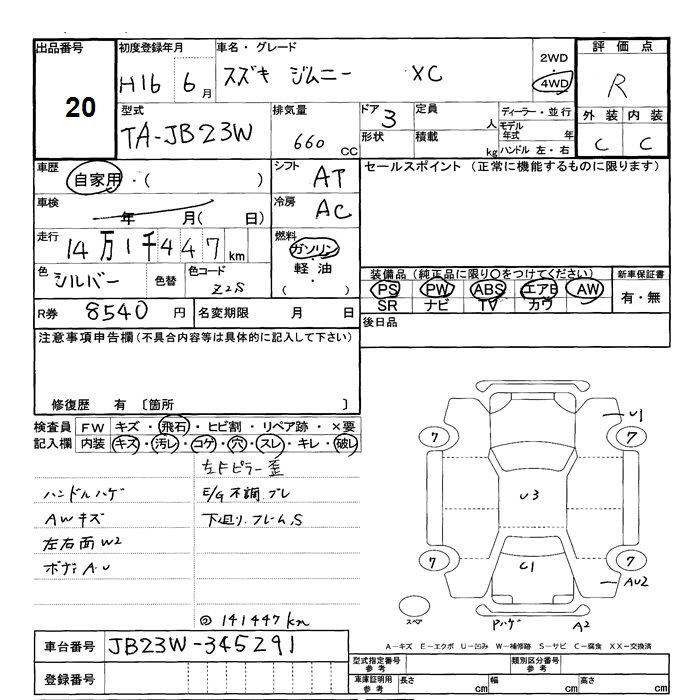 出品番号 初度登録年月 車名・グレード 評価点
20 H16 6月 スズキ ジムニー XC 2WD 4WD R
型式 排気量 ドア 定員 ディーラー・並行 外装 内装
TA-JB23W 660 CC 3 人 モデル年式 年 C C
形状 積載 kg ハンドル 左・右
車歴 シフト セールスポイント (正常に機能するものに限ります)
自家用・( ) AT
車検 冷房
年 月( 日) AC
走行 燃料
14万1千447km ガソリン・軽油・( )
色 色替 色コード 装備品 (純正品に限り○をつけてください) 新車保証書
シルバー Z2S PS PW ABS エアB AW 有・無
SR ナビ TV カワ
R券 8540円 名変期限 月 日 後日品
注意事項申告欄(不具合内容等は具体的に記入して下さい)
修復歴 有 〔箇所 〕
検査員 FW キズ・飛石・ヒビ割・リペア跡・×要
記入欄 内装 キズ・汚レ・コゲ・穴・スレ・キレ・破レ
左Fピラー歪
ハンドルハゲ E/G不調.ブレ
AWキズ 下廻リ.フレームS
左右面W2
ボディA.U
@141447km
U1
7 7
U3
7 7
C1
AU2
スペア Pハゲ A2
A-キズ E-エクボ U-凹み W-補修跡 S-サビ C-腐食 XX-交換済
車台番号 JB23W-345291
登録番号
型式指定番号 参考 類別区分番号 参考
車庫証明用 参考 長さ cm 幅 cm 高さ cm